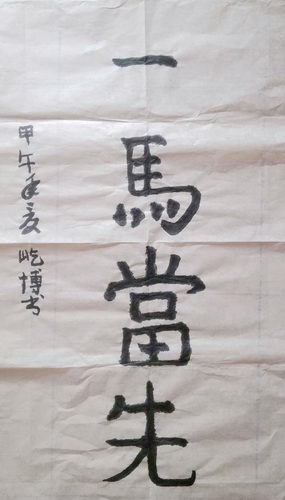 一馬當先
甲午年夏 屹博书